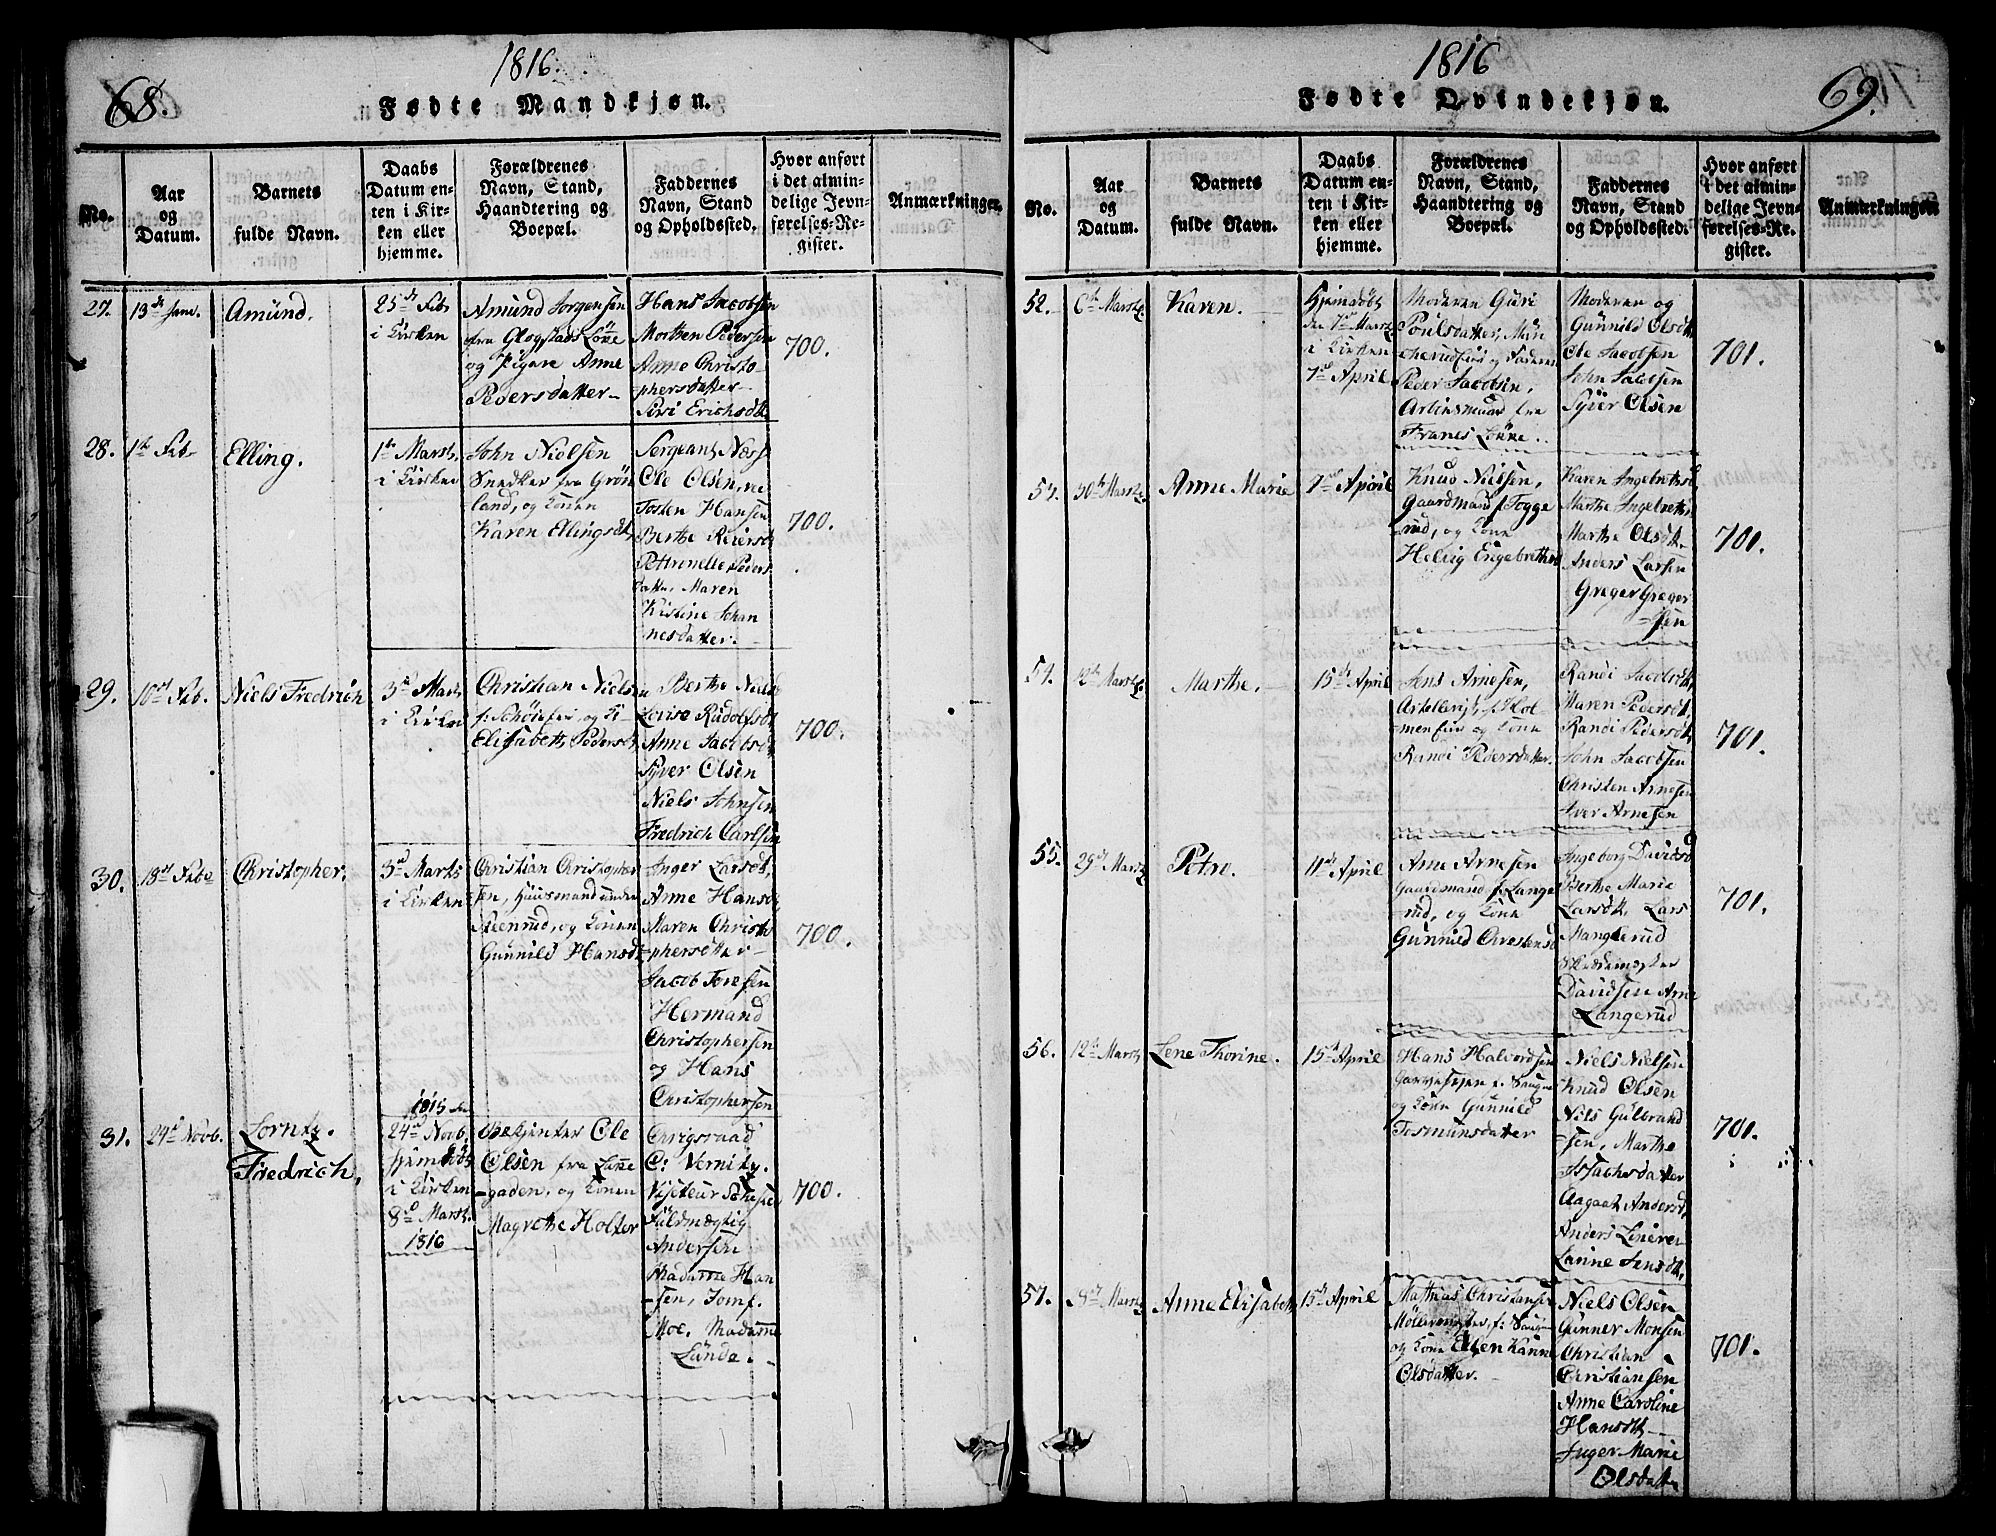 68.
1816.
Fødte Mandkjøn.
No.
Aar
og
Datum.
Barnets
fulde Navn.
Daabs
Datum en-
ten i Kir-
ken eller
hjemme.
Forældrenes
Navn, Stand,
Haandtering og
Boepæl.
Faddernes
Navn, Stand
og Opholdssted.
Hvor anført
i det almin-
delige Jevn-
førelses-Re-
gister.
Anmærkninger.
27.
13de Janv.
Amund.
25de Feb
i Kirken
Amund Jorgensen
fra Glogstads Løkke
og Pigen Anne
Pedersdatter
Hans Jacobsen
Morthen Pedersen
Anne Christo-
phersdatter
Siri Erichsdt
700.
28.
1te Feb
Elling.
1te Marts,
i Kirken
John Nielsen
Snedker fra Grøn
land, og Konen
Karen Ellingsdt
Sergeant Næss
Ole Olsen,
Tosten Hansen
Berthe Reiersd
Pettronelle Peders
datter, Maren
Kistine Johan
nesdatter.
700.
29.
10de Feb.
Niels Fredrich
3de Marts
i Kirken
Christian Niels
Elisabeth Pedersd
Berthe Niels
Lovise Rudolfsd
Anne Jacobsd
Syver Olsen
Niels Johnsen
Fredrich Carlsen
700.
30.
18de Febr
Christopher.
3de Marts
i Kirken
Christian Christopher
sen, Huusmand under
Steenrud, og Konen
Gunnild Hansd
Inger Larsdt,
Anne Hansd,
Maren Christo
phersdtter
Jacob Toresen
Hermand
Christophersen
og Hans
Christophersen
700.
31.
24de Novb.
Lorntz
Fredrich,
1815
24de Novb.
hjemdøbt
i Kirken
8de Marts.
1816
Betjenter Ole
Olsen fra Lakke
gaden, og Konen
Magrethe Holter
Krigsraad
C: Vernitz.
Visiteur
Fuldmægtig
Andersen
Madamme Han
sen, Jomf.
Moe. Madamme
Lunde.
700.
1816
Fødte Qvindekjøn.
69.
No.
Aar
og
Datum.
Barnets
fulde Navn.
Daabs
Datum en-
ten i Kir-
ken eller
hjemme.
Forældrenes
Navn, Stand,
Haandtering og
Boepæl.
Faddernes
Navn, Stand
og Opholdssted.
Hvor anført
i det almin-
delige Jevn-
førelses-Re-
gister.
Anmærkninger
52.
6te Marts
Karen.
Hjemdøbt
den 7de Marts
i Kirken
7de April
Moderen Guri
Poulsdatter, Mün
cherudeie og Faderen
Peder Jacobsen,
Arbeidsmand fra
Franes Løkke.
Moderen og
Gunnild Olsdt
Ole Jacobsen
John Jacobsen
Syver Olsen
701.
53.
30te Marts
Anne Marie
7de April
Knud Nielsen,
Gaardmand f Togge
rud, og Kone
Helvig Engebrethsd
Karen Ingebrethsd
Marthe Ingebrethsd
Marthe Olsdt.
Anders Larsen
Greger Greger
sen
701.
54.
12te Marts
Marthe.
15de April
Jens Arnesen,
menseie og Kone
Randi Pedersdatter.
Randi Jacobsdt,
Maren Pedersdt,
Randi Pedersdt,
John Jacobsen
Christen Arnesen
Iver Arnesen
701.
55.
29de Marts
Petro.
11de April
Arne Arnesen
Gaardmand f: Lange
rud, og Kone
Gunnild Christensd
Ingeborg Davidsd
Berthe Marie
Larsdt, Lars
Manglerud
Skræderm
Davidsen Arne
Langerud
701.
56.
12te Marts
Lene Thorine.
15de April
Hans Halvordsen
og Kone Gunnild
Tosmunsdatter
Niels Nielsen
Knud Olsen
Nils Gulbrand
sen, Marthe
Issachsdatter
Aagaat Andersd,
Anders
Lanne Jensdt,
701.
57.
8de Marts
Anne Elisabeth
15de April
Mathias Christansen
Møllermester, f:
og Kone Ellen Kanne
Olsdatter.
Niels Olsen
Gunner Monsen
Christian
Christiansen
Anne Caroline
Hansdt
Inger Marie
Olsdatter
701.